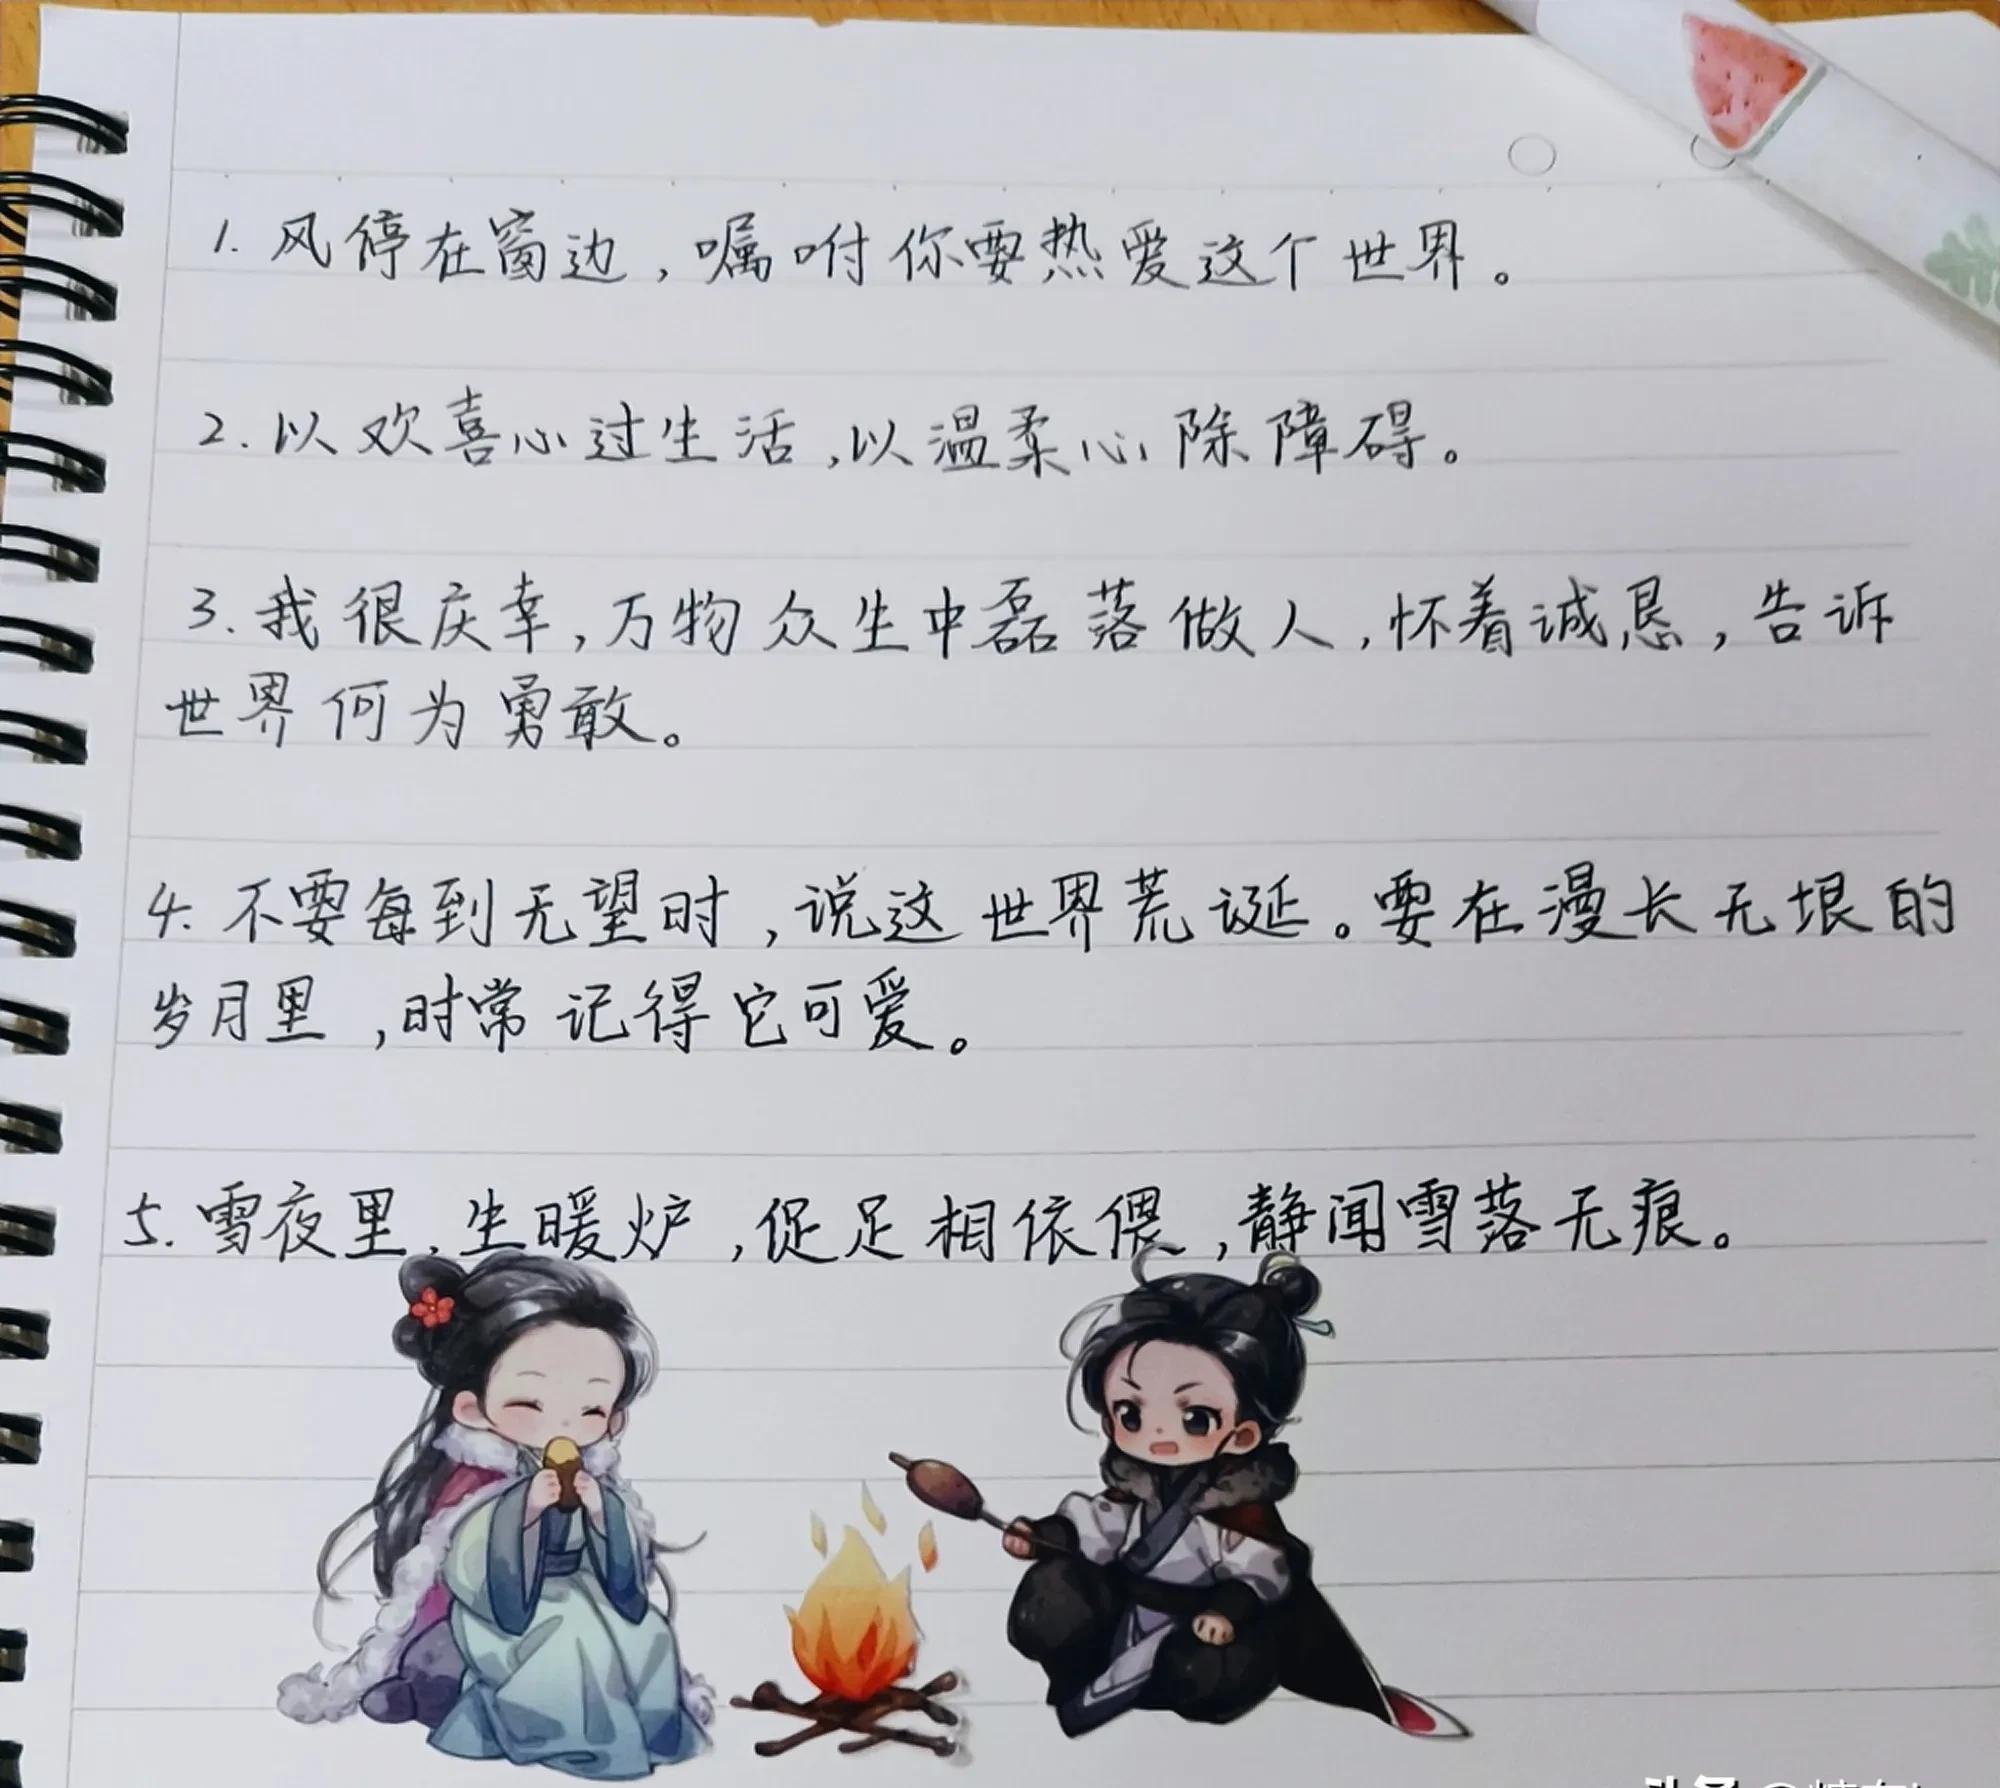 1. 风停在窗边，嘱咐你要热爱这个世界。
2. 以欢喜心过生活，以温柔心除障碍。
3. 我很庆幸，万物众生中磊落做人，怀着诚恳，告诉
世界何为勇敢。
4. 不要每到无望时，说这世界荒诞。要在漫长无垠的
岁月里，时常记得它可爱。
5. 雪夜里，生暖炉，促足相依偎，静闻雪落无痕。